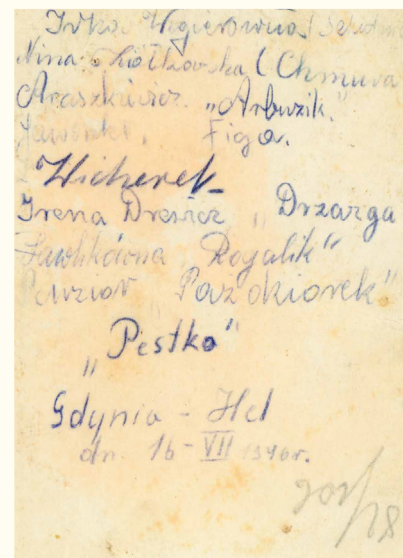 Irka Węgierówna
Nina Ziółkowska (Chmura
Araszkiewicz „Arbuzik."
Jaworska, Figa.
Wicherek
Irena Drewicz „Drzazga
Pawlikówna Rogalik"
Paździorek"
„Pestka"
Gdynia - Hel
dn. 16 - VII 1946r.